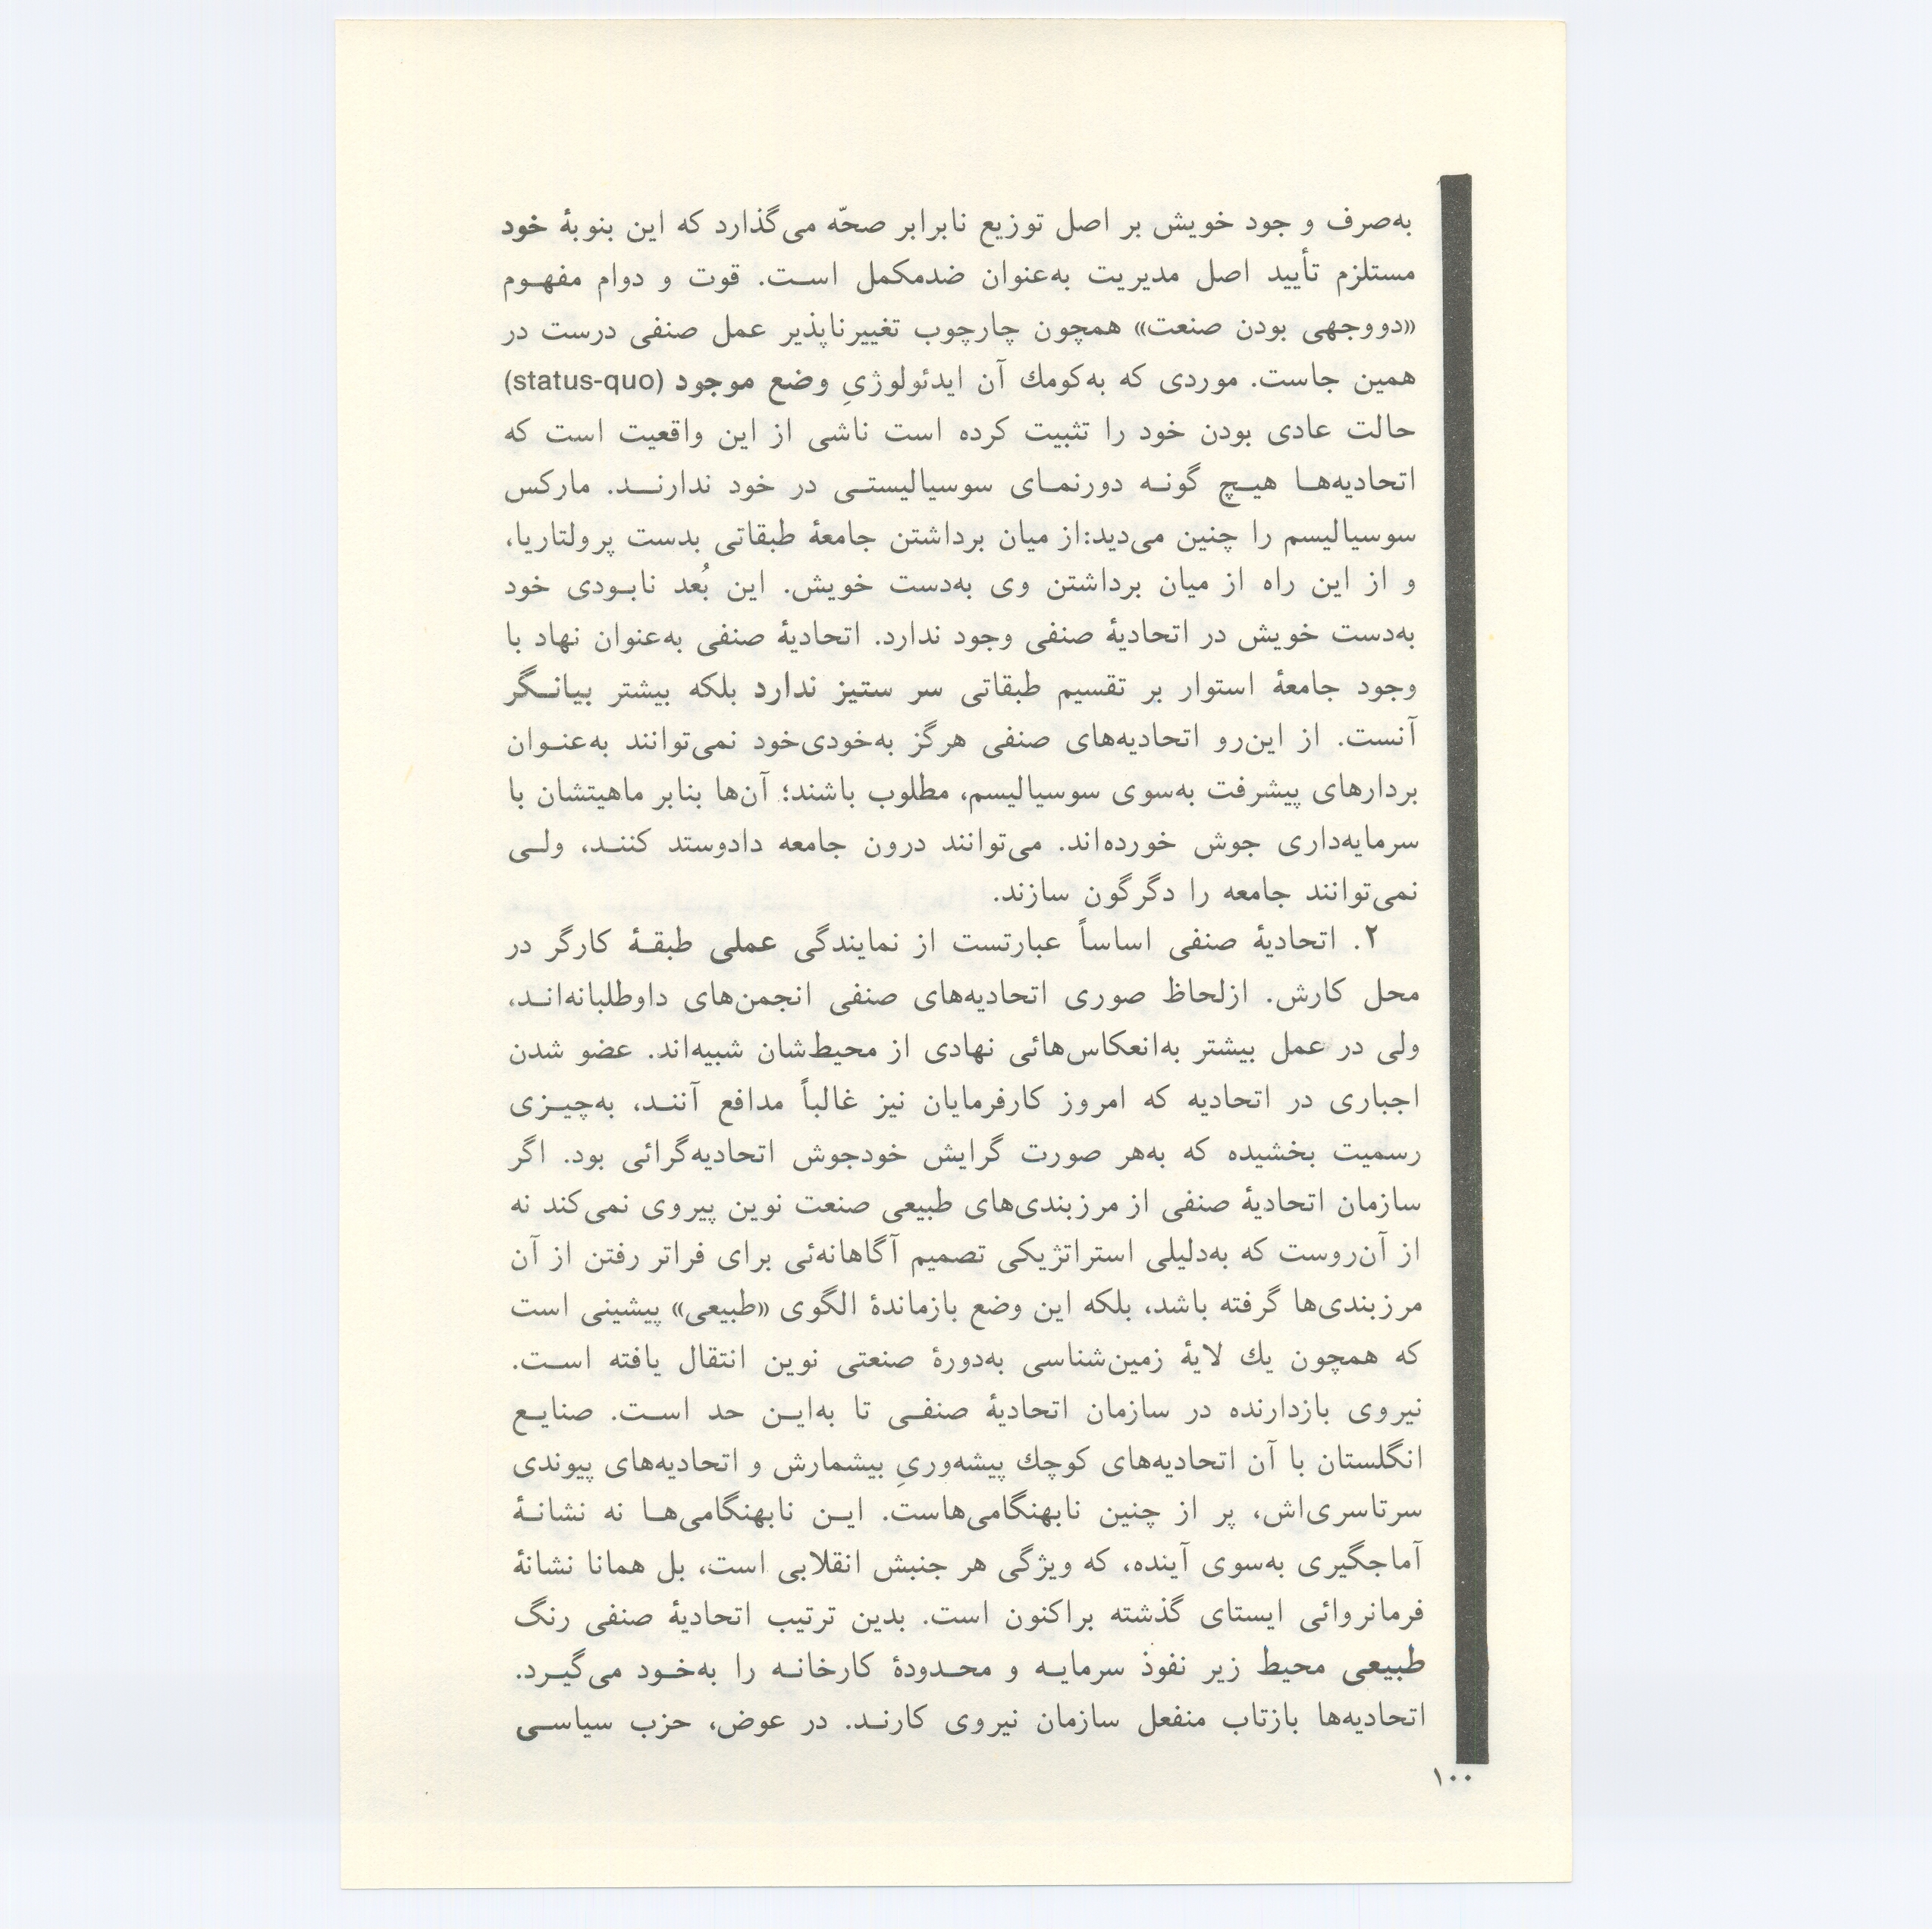 به‌صرف و جود خویش بر اصل توزیع نابرابر صحّه می‌گذارد که این بنوبهٔ خود
مستلزم تأیید اصل مدیریت به‌عنوان ضدمکمل است. قوت و دوام مفهوم
«دووجهی بودن صنعت» همچون چارچوب تغییرناپذیر عمل صنفی درست در
همین جاست. موردی که به‌کومك آن ایدئولوژیِ وضع موجود (status-quo)
حالت عادی بودن خود را تثبیت کرده است ناشی از این واقعیت است که
اتحادیه‌ها هیچ گونه دورنمای سوسیالیستی در خود ندارند. مارکس
سوسیالیسم را چنین می‌دید:از میان برداشتن جامعهٔ طبقاتی بدست پرولتاریا،
و از این راه از میان برداشتن وی به‌دست خویش. این بُعد نابودی خود
به‌دست خویش در اتحادیهٔ صنفی وجود ندارد. اتحادیهٔ صنفی به‌عنوان نهاد با
وجود جامعهٔ استوار بر تقسیم طبقاتی سر ستیز ندارد بلکه بیشتر بیانگر
آنست. از این‌رو اتحادیه‌های صنفی هرگز به‌خودی‌خود نمی‌توانند به‌عنوان
بردارهای پیشرفت به‌سوی سوسیالیسم، مطلوب باشند؛ آن‌ها بنابر ماهیتشان با
سرمایه‌داری جوش خورده‌اند. می‌توانند درون جامعه دادوستد کنند، ولی
نمی‌توانند جامعه را دگرگون سازند.
۲. اتحادیهٔ صنفی اساساً عبارتست از نمایندگی عملی طبقهٔ کارگر در
محل کارش. ازلحاظ صوری اتحادیه‌های صنفی انجمن‌های داوطلبانه‌اند،
ولی در عمل بیشتر به‌انعکاس‌هائی نهادی از محیط‌شان شبیه‌اند. عضو شدن
اجباری در اتحادیه که امروز کارفرمایان نیز غالباً مدافع آنند، به‌چیزی
رسمیت بخشیده که به‌هر صورت گرایش خودجوش اتحادیه‌گرائی بود. اگر
سازمان اتحادیهٔ صنفی از مرزبندی‌های طبیعی صنعت نوین پیروی نمی‌کند نه
از آن‌روست که به‌دلیلی استراتژیکی تصمیم آگاهانه‌ئی برای فراتر رفتن از آن
مرزبندی‌ها گرفته باشد، بلکه این وضع بازماندهٔ الگوی «طبیعی» پیشینی است
که همچون یك لایهٔ زمین‌شناسی به‌دورهٔ صنعتی نوین انتقال یافته است.
نیروی بازدارنده در سازمان اتحادیهٔ صنفی تا به‌این حد است. صنایع
انگلستان با آن اتحادیه‌های کوچك پیشه‌وریِ بیشمارش و اتحادیه‌های پیوندی
سرتاسری‌اش، پر از چنین نابهنگامی‌هاست. این نابهنگامی‌ها نه نشانهٔ
آماجگیری به‌سوی آینده، که ویژگی هر جنبش انقلابی است، بل همانا نشانهٔ
فرمانروائی ایستای گذشته براکنون است. بدین ترتیب اتحادیهٔ صنفی رنگ
طبیعی محیط زیر نفوذ سرمایه و محدودهٔ کارخانه را به‌خود می‌گیرد.
اتحادیه‌ها بازتاب منفعل سازمان نیروی کارند. در عوض، حزب سیاسی
۱۰۰